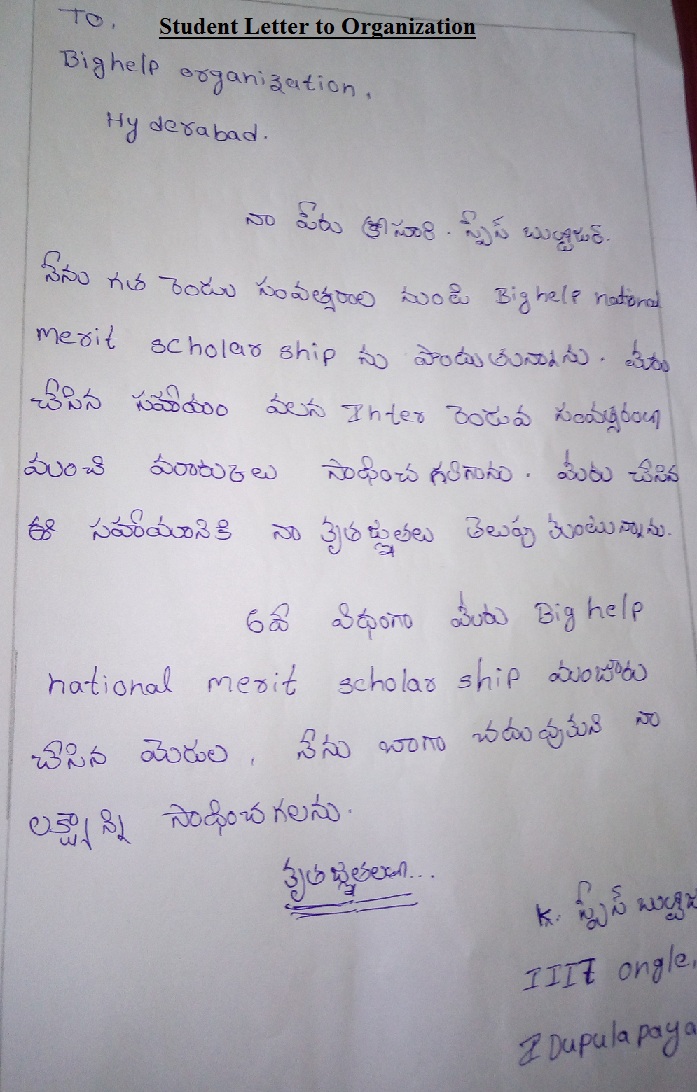 TO,
Student Letter to Organization
Bighelp organization,
Hyderabad.
నా పేరు
నేను గత రెండు సంవత్సరాల నుండి Bighelp national
merit scholar ship ను పొందుతున్నాను. మీరు
చేసిన సహాయం వలన Inter రెండువ సంవత్సరంలో
మంచి మార్కులు సాధించ గలిగాను. మీరు చేసిన
ఈ సహాయానికి నా కృతజ్ఞతలు తెలుపు కుంటున్నాను.
విధంగా మీరు Big help
national merit scholar ship మంజూరు
చేసిన యెడల, నేను బాగా చదువుకుని నా
లక్ష్యాన్ని సాధించగలను.
కృతజ్ఞతలతో...
K.
IIIT ongle,
IDupulapaya